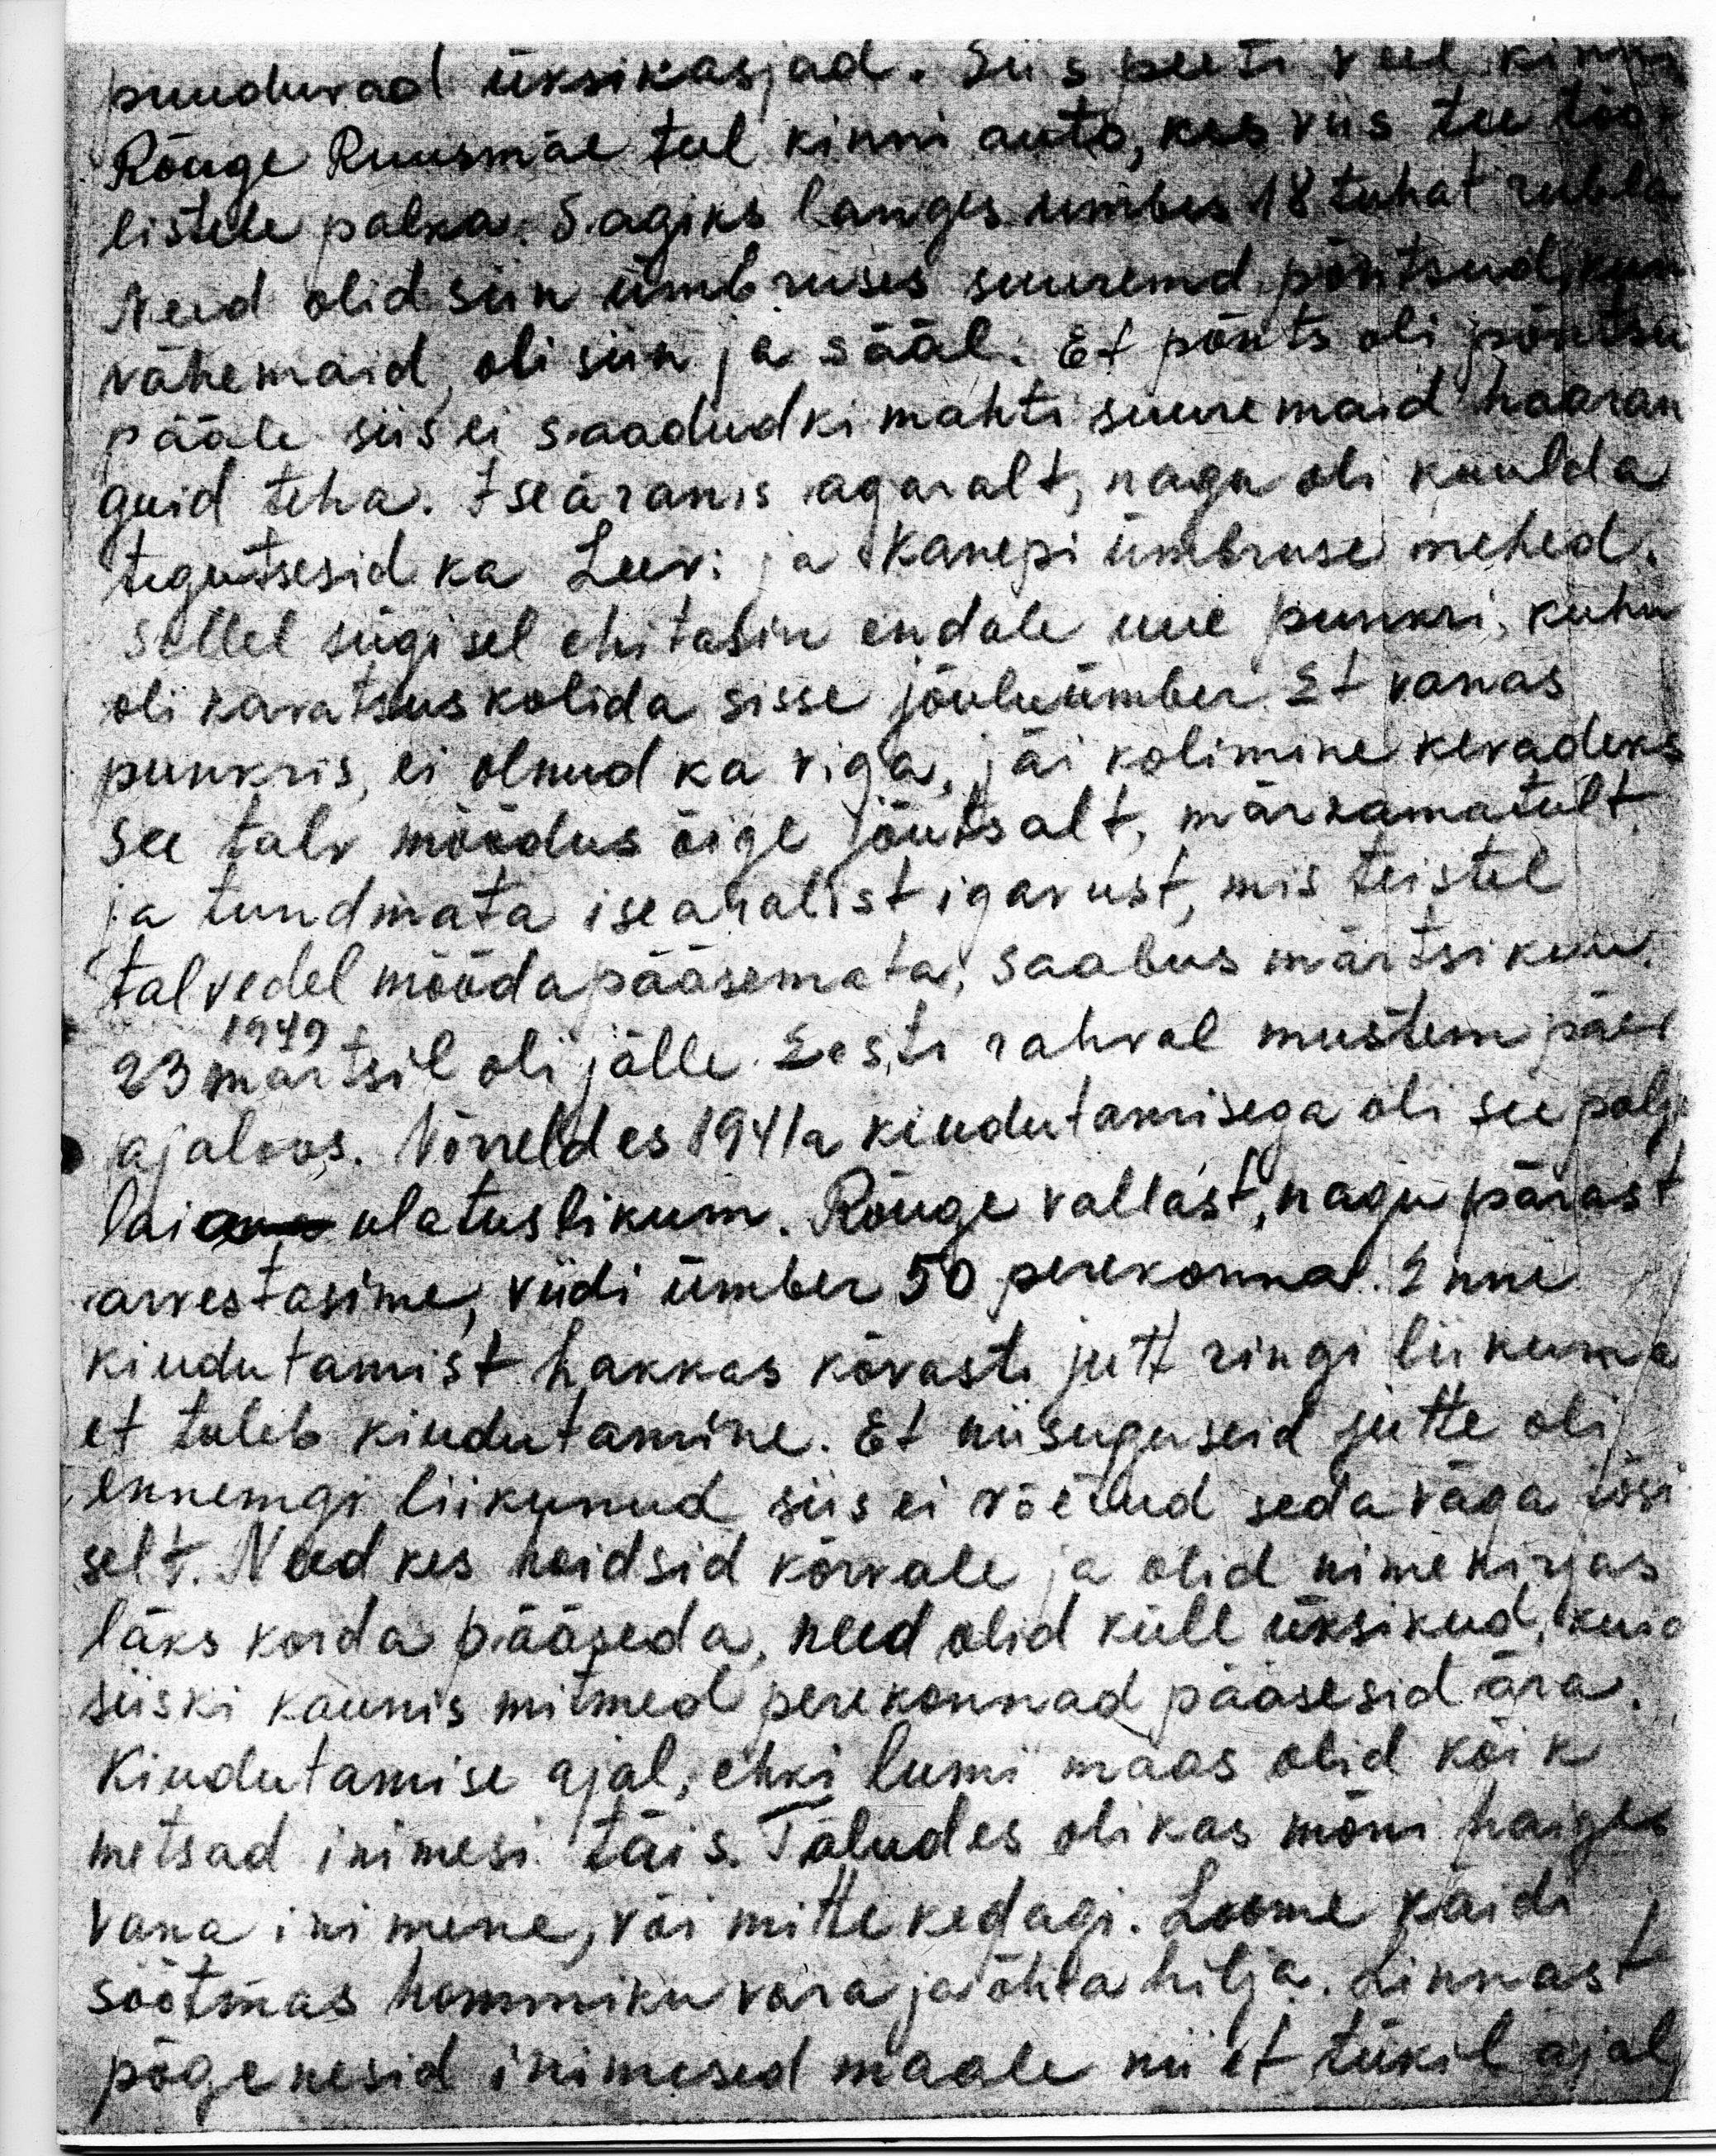 puuduvad üksikasjad. Siis peeti veel kinni
Rõuge Ruusmäe teel kinni auto, kes viis tee töö-
listele palka. Saagiks langes umbes 18 tuhat rubla
Need olid siin ümbruses suuremd põntsud, kuna
vähemaid, oli siin ja sääl. Et põnts oli põntsu
pääle siis ei saadudki mahti suuremaid haaran
guid teha. Iseäranis agaralt, nagu oli kuulda
tegutsesid ka Leevi ja Kanepi ümbruse mehed.
Sellel sügisel ehitasin endale uue punkri, kuhu
oli kavatsus kolida sisse jõuluümber. Et vanas
punkris, ei olnud ka viga, jäi kolimine kevadeks
See talv möödus õige jõutsalt, märkamatult,
ja tundmata isearalist igavust, mis teistel
talvedel möödapääsemata, saabus märtsikuu.
1949
23 märtsil oli jälle Eesti rahval mustem päev
ajaloos. Võrreldes 1941a küüdutamisega oli see palju
lai ulatuslikum. Rõuge vallast, nagu pärast
arvestasime, viidi ümber 50 perekonna. Enne
kiudutamist hakkas kõvasti jutt ringi liikuma
et tuleb kiudutamine. Et niisuguseid jutte oli
ennemgi liikunud siis ei võetud seda väga tõsi
selt. Need kes hoidsid kõrvale ja olid nimekirjas
läks korda pääseda, need olid küll üksikud, kuid
siiski kaunis mitmed perekonnad pääsesid ära.
Kiudutamise ajal, ehki lumi maas olid kõik
metsad inimesi täis. Taludes oli kas mõni haige
vana inimene, või mitte kedagi. Loome käidi
söötmas hommiku vara ja õhta hilja. Linnast
põgenesid inimesed maale nii et tükil ajal